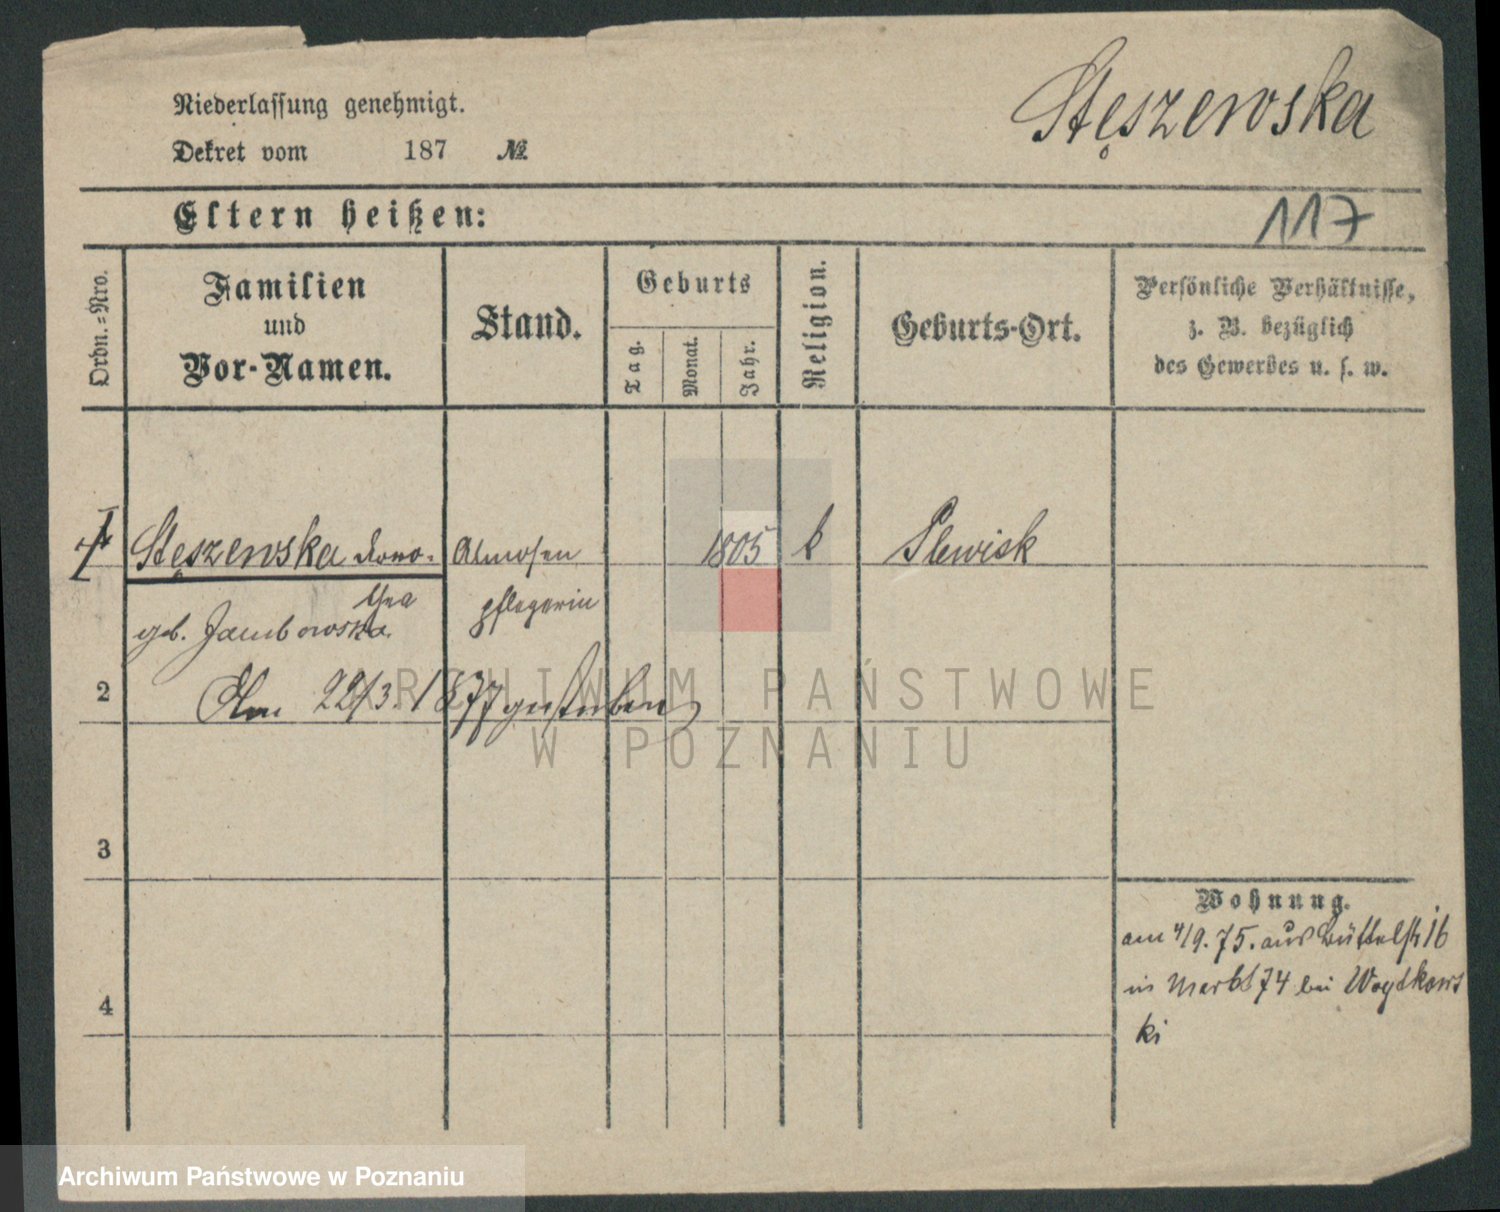 Stęszewska
Niederlassung genehmigt.
Dekret vom 187 №
Eltern heißen:
117
Ordn.-Nro.
Familien
und
Vor-Namen.
Stand.
Geburts
Tag.
Monat.
Jahr.
Religion.
Geburts-Ort.
Persönliche Verhältnisse,
z. B. bezüglich
des Gewerbes u. s. w.
1 Stęszewska Doro- Almosen 1805 k Plewisk
thea pflegerin
geb. Jambowska.
2 Am 22/3. 1877 gestorben
ARCHIWUM PAŃSTWOWE
W POZNANIU
3
Wohnung.
am 4/9. 75. aus Büttelstr 16
in Markt 74 bei Woytkows
ki
4
Archiwum Państwowe w Poznaniu